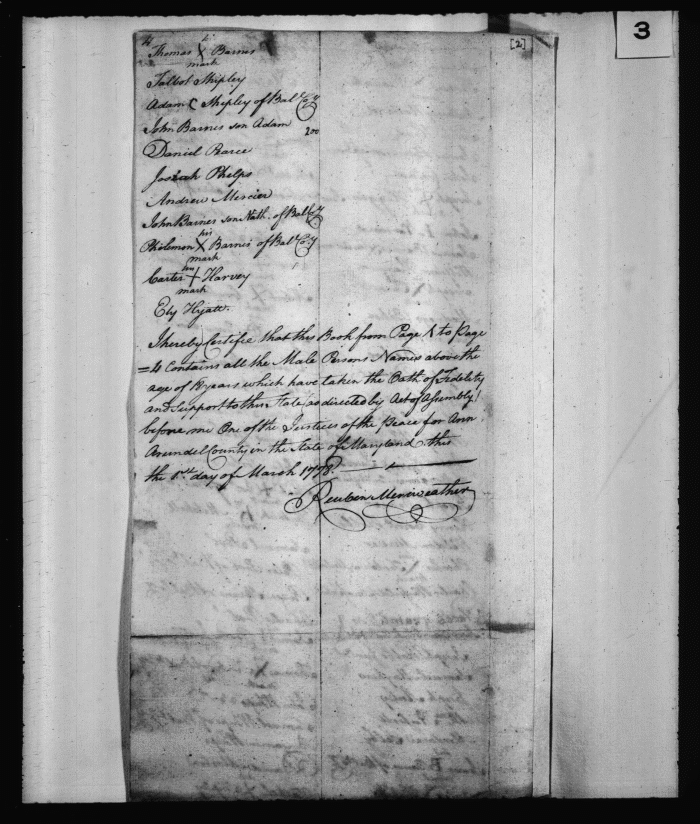 3
[2]
4
his
Thomas X Barnes
mark
Talbot Shipley
Adam C Shipley of Balt Coy
John Barnes son Adam
200
Daniel Pearce
Josiah Phelps
Andrew Mercier
John Barnes son Nath. of Balt Coy
his
Philemon X Barnes of Balt Coy
mark
Carter + Harvey
mark
Ely Hyatt.
I hereby Certifie that this Book from Page 1 to Page
=4 Contains all the Male Persons Names above the
age of 18 years which have taken the Oath of Fidelity
and Support to this State as directed by Act of Assembly
before me One of the Justices of the Peace for Ann
Arundel County in the State of Maryland this
the 1st day of March 1778.
Reuben Meriweather